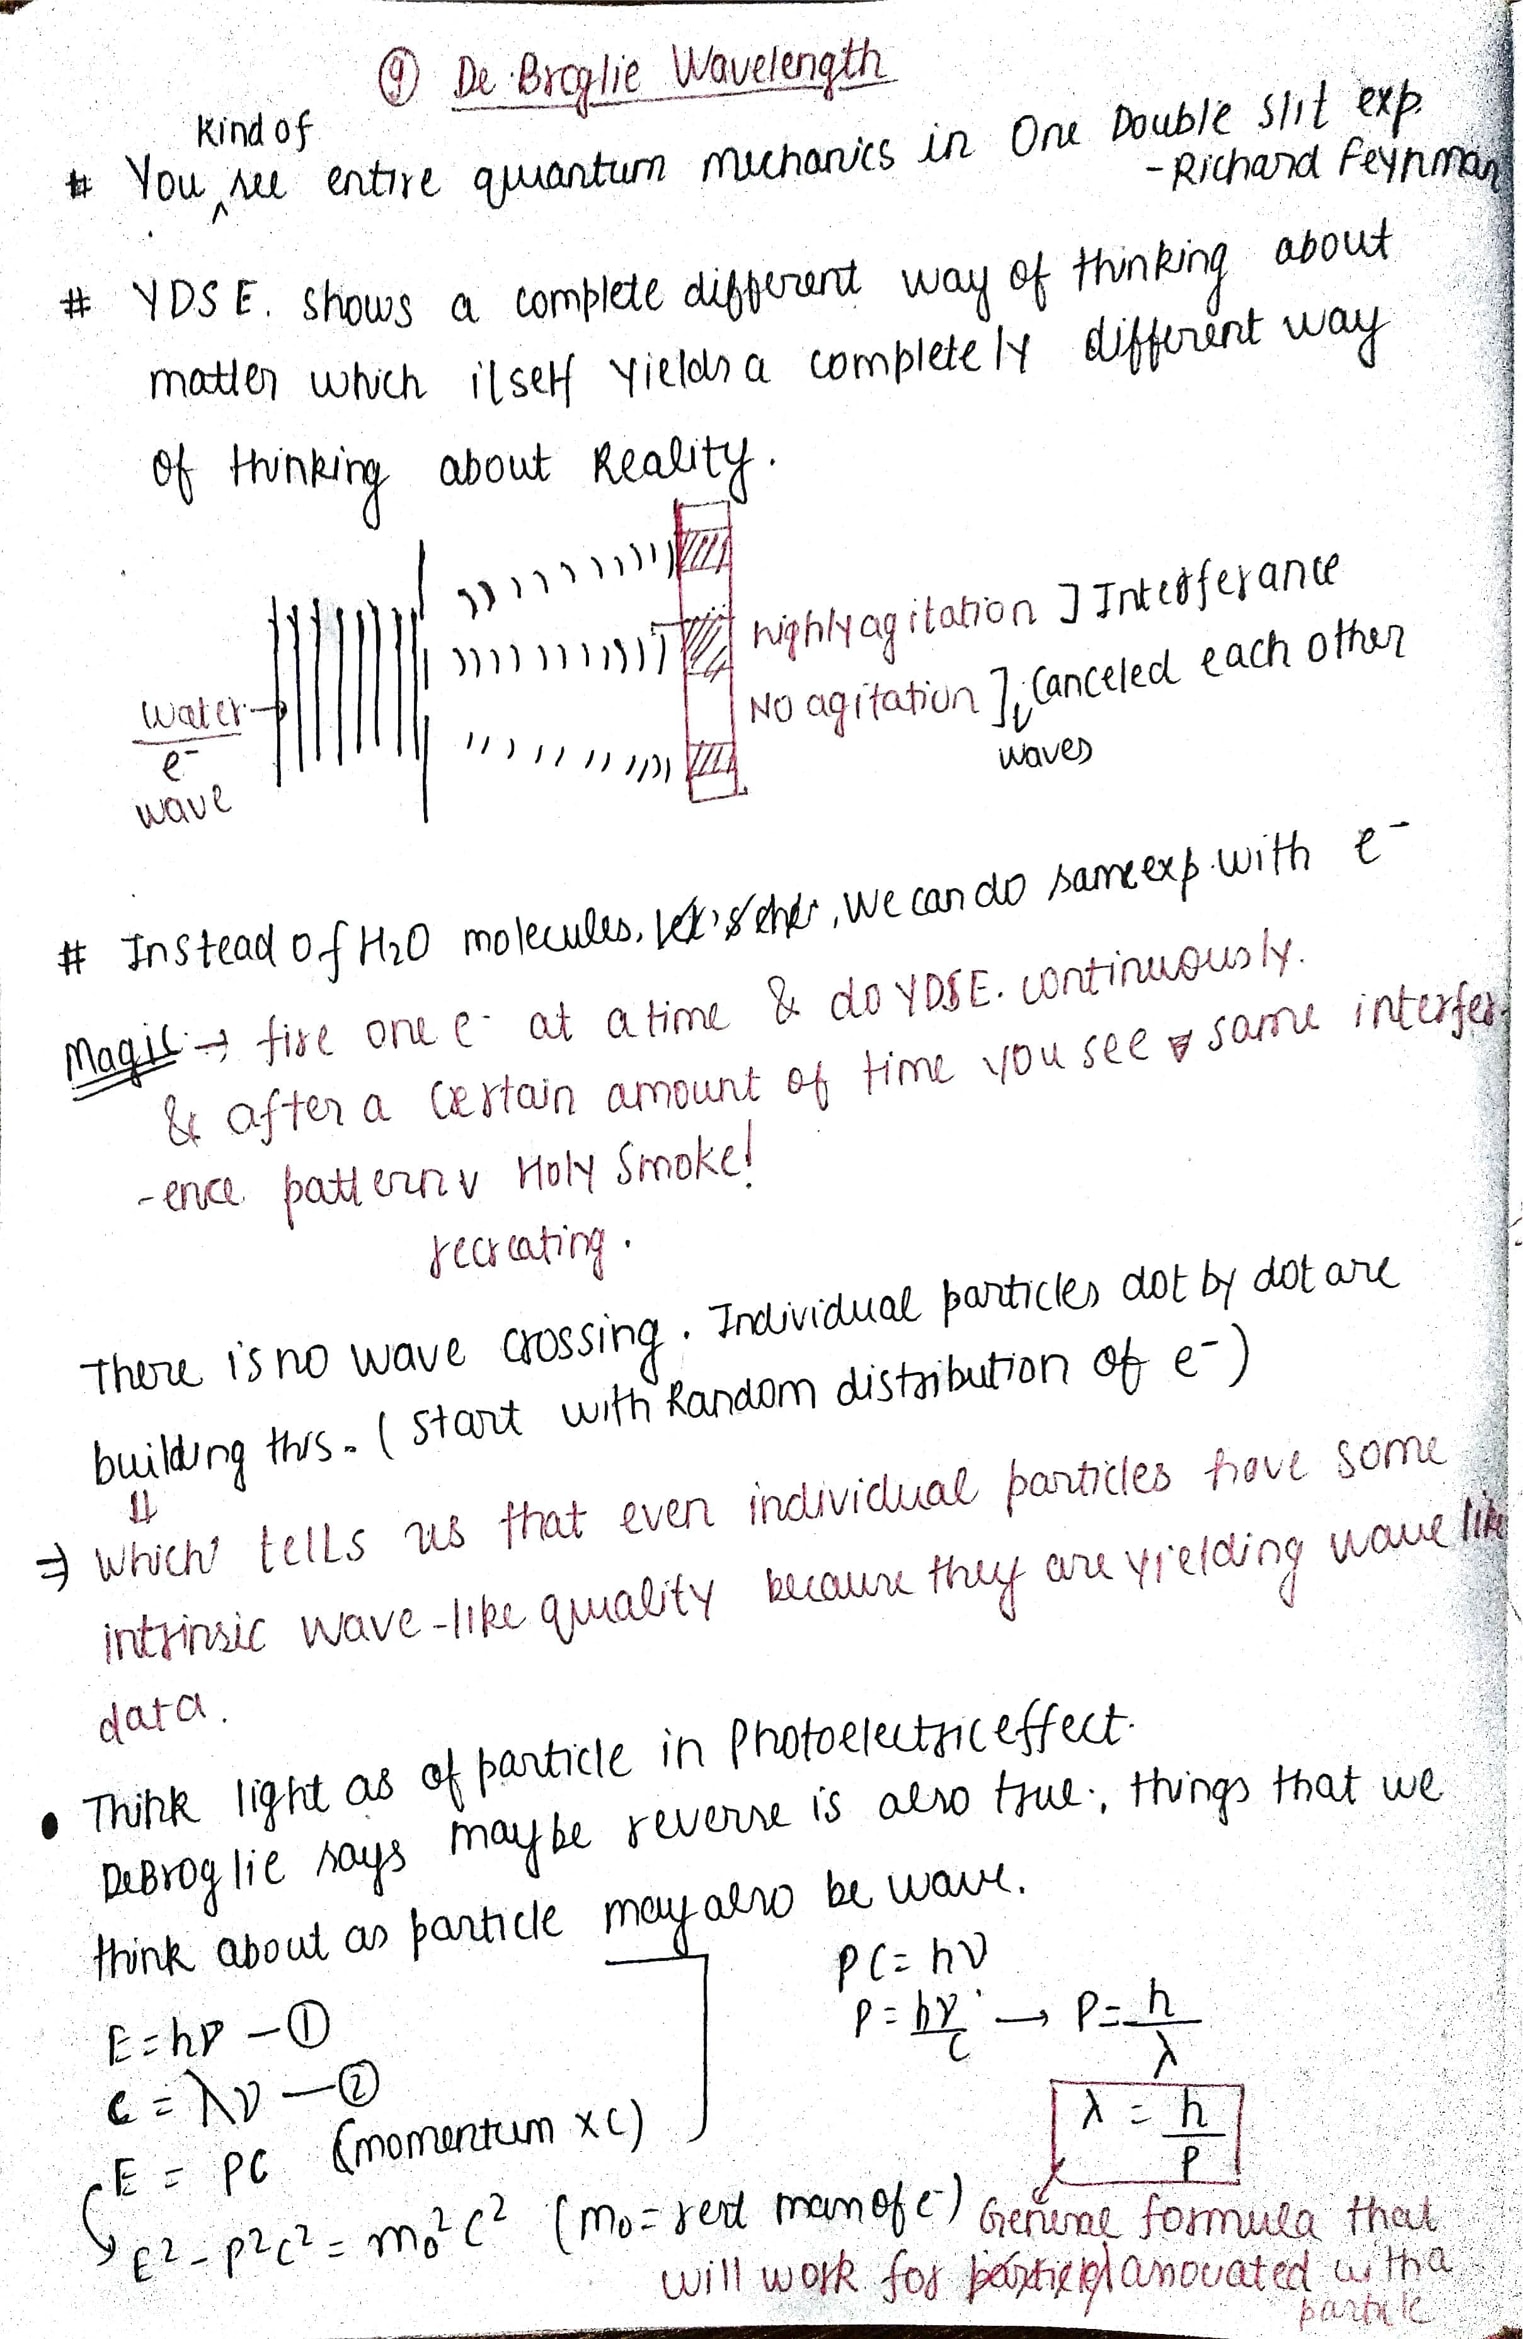 ⑨ De-Broglie Wavelength
Kind of
# You ^ see entire quantum mechanics in One Double slit exp.
- Richard Feynman
# YDSE. shows a complete different way of thinking about
matter which itself yields a completely different way
of thinking about Reality.
highly agitation ] Interferance
No agitation ] Canceled each other
waves
water
e⁻
wave
# Instead of H₂O molecules, we can do same exp. with e⁻
Magic → fire one e⁻ at a time & do YDSE. continuously.
& after a certain amount of time you see same interfer-
-ence pattern v Holy Smoke!
recreating.
There is no wave crossing. Individual particles dot by dot are
building this. (Start with Random distribution of e⁻)
⇓
⇒ which tells us that even individual particles have some
intrinsic wave-like quality because they are yielding wave like
data.
• Think light as of particle in Photoelectric effect.
DeBroglie says maybe reverse is also true., things that we
think about as particle may also be wave.
E = hν - ①
c = λν - ②
E = PC (momentum x c)
E² - P²c² = m₀²c² (m₀ = rest mass of e⁻)
PC = hν
P = hν/c → P = h/λ
λ = h/P
General formula that
will work for associated with a
particle